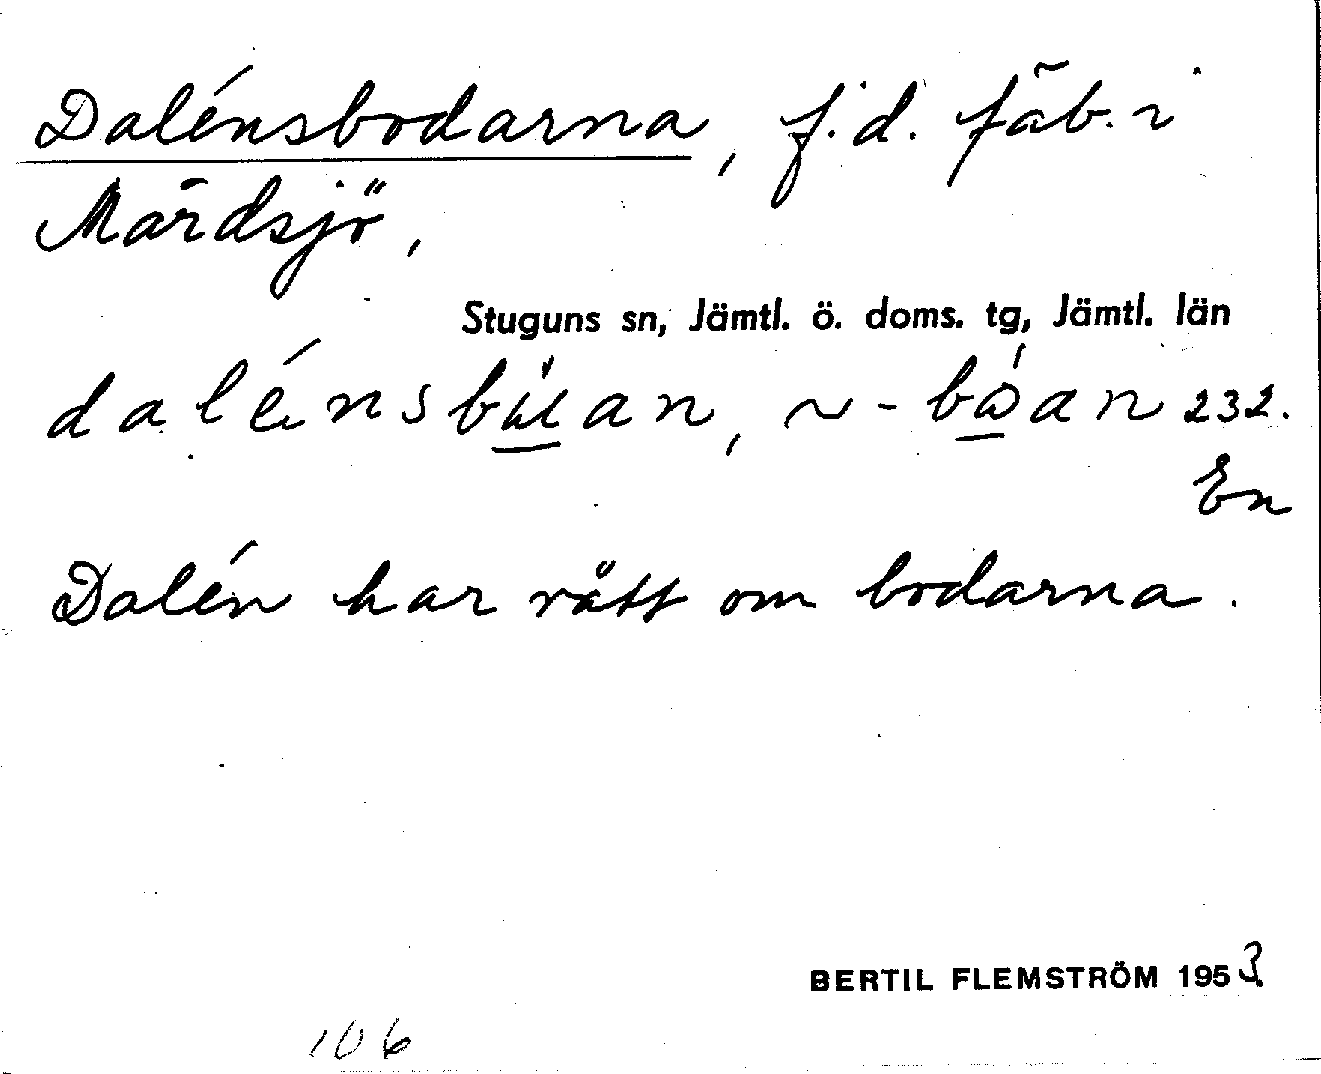 Dalénsbodarna, f.d. fäb. i
Mårdsjö,
Stuguns sn, Jämtl. ö. doms. tg, Jämtl. län
dalénsbu̲an, ~ -bω̲an 232.
En
Dalén har rätt om bodarna.
BERTIL FLEMSTRÖM 1953
106